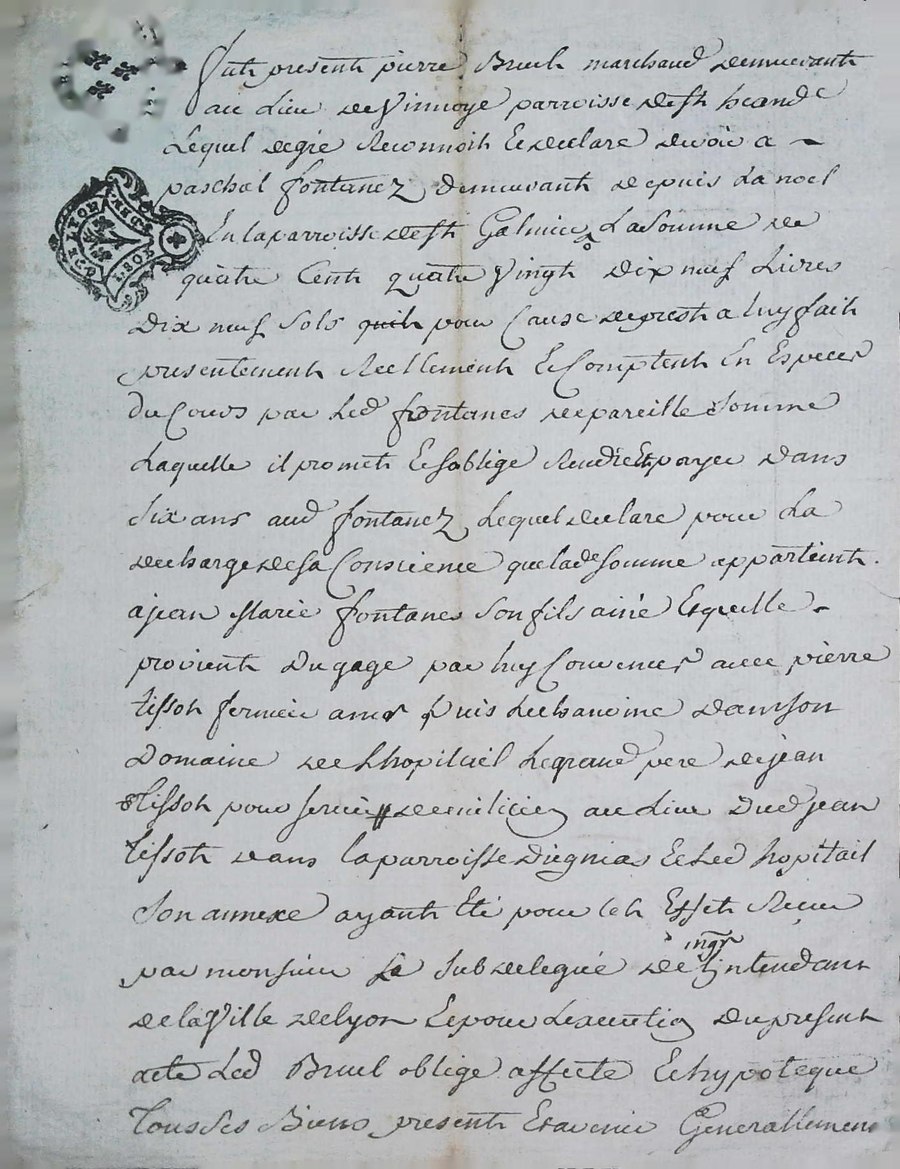 Fut present pierre Bruel marchand demeurant
au Lieu de Vinnoye parroisse de st heand
Lequel de gré Reconnoit Et declare devoir a
paschal fontanez demeurant depuis La noel
En la parroisse de st Galmier La Somme de
quatre Cent quatre Vingt dix neuf Livres
dix neuf Sols pour Cause de prest a luy fait
presentement Reellement Et Comptent En Especes
du Cours par Led fontanes de pareille Somme
Laquelle il promet Et soblige Rendre Et payer dans
Six ans aud fontanez Lequel declare pour La
decharge de sa Conscience que lade somme appartient
a jean Marie fontanes Son fils ainé Et quelle
provient du gage par luy Convenus avec pierre
tissot fermier au Puis du
Domaine de Lhopitail Le grand pere de jean
tissot pour servir de milicien au Lieu dud jean
tissot dans la parroisse Et Led hopitail
Son annexe ayant Eté pour Cet Effet Reçu
par monsieur Le Subdelegué de Lintendant
ingr
de la Ville de lyon Et pour Lexecution du present
acte Led Bruel oblige affecte Et hypoteque
Tous ses Biens present Et avenir Generallement